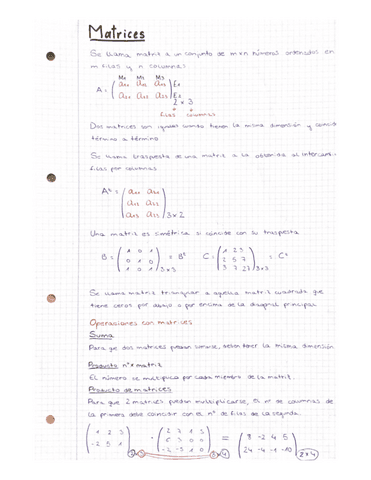 Matrices
Se llama matriz a un conjunto de m x n números ordenados en
m filas y n columnas
A =
2 x 3
filas columnas
Dos matrices son iguales cuando tienen la misma dimensión y coincid
término a término
Se llama traspuesta de una matriz a la obtenida al intercam.
filas por columnas
3 x 2
Una matriz es simétrica si coincide con su traspuesta
B = ( 1 0 1 = Bt C = ( 1 2 3 = Ct
0 1 0 2 5 7
1 0 1 ) 3x3 3 7 27 ) 3x3
Se llama matriz triangular a aquella matriz cuadrada que
tiene ceros por debajo o por encima de la diagonal principal
Operaciones con matrices
Suma
Para que dos matrices puedan sumarse, deben tener la misma dimensión
Producto nº x matriz
El número se multiplica por cada miembro de la matriz.
Producto de matrices
Para que 2 matrices puedan multiplicarse, el nº de columnas de
la primera debe coincidir con el nº de filas de la segunda.